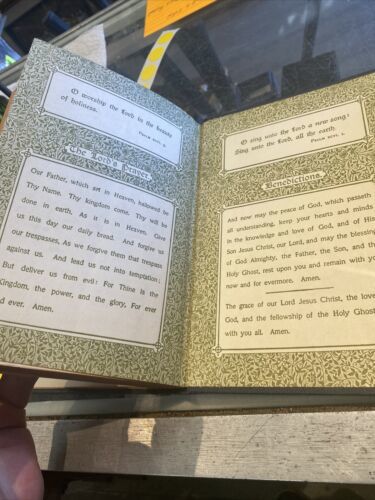 O worship the Lord in the beauty
of holiness.
Psalm xcvi, 9.
The Lord's Prayer.
Our Father, which art in Heaven, hallowed be
Thy Name. Thy kingdom come. Thy will be
done in earth, As it is in Heaven. Give
us this day our daily bread. And forgive us
our trespasses, As we forgive them that trespass
against us. And lead us not into temptation;
But deliver us from evil: For Thine is the
Kingdom, the power, and the glory, For ever
and ever. Amen.
O sing unto the Lord a new song:
Sing unto the Lord, all the earth.
Psalm xcvi, 1.
Benedictions.
And now may the peace of God, which passeth
all understanding, keep your hearts and minds
in the knowledge and love of God, and of His
Son Jesus Christ, our Lord; and may the blessing
of God Almighty, the Father, the Son, and the
Holy Ghost, rest upon you and remain with you
now and for evermore. Amen.
The grace of our Lord Jesus Christ, the love
God, and the fellowship of the Holy Ghost
with you all. Amen.